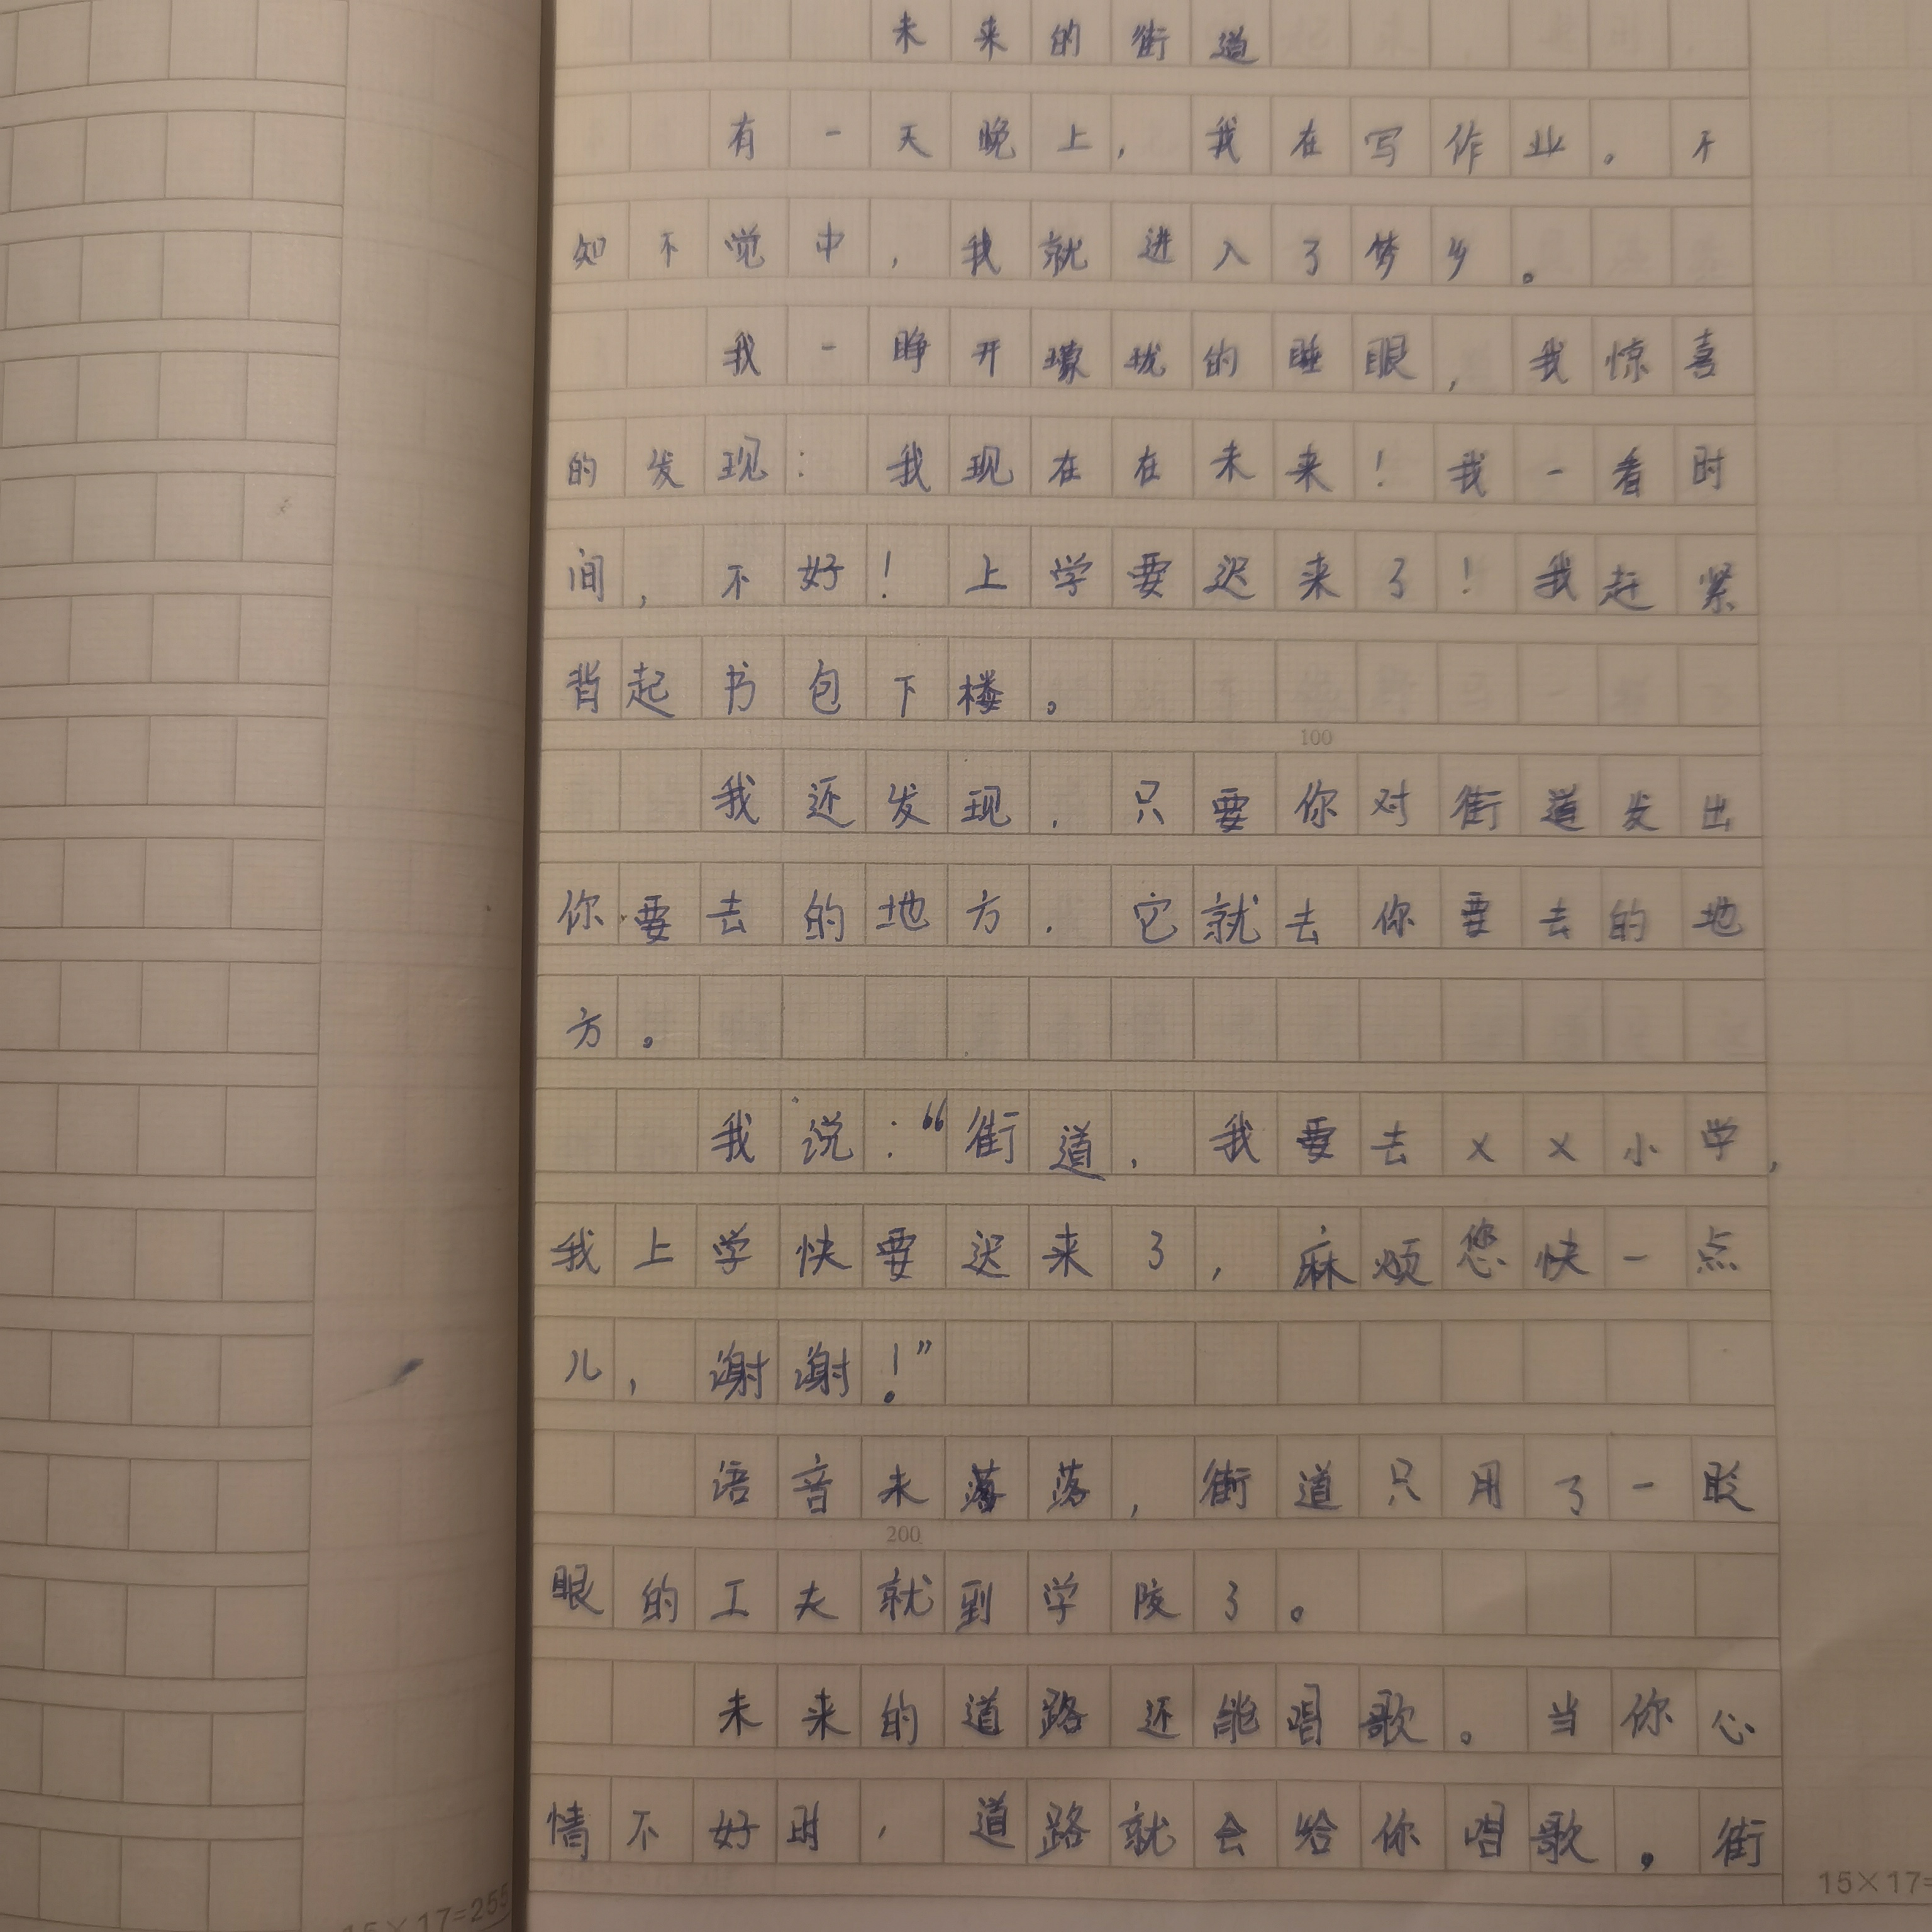 未来的街道
有一天晚上，我在写作业。不
知不觉中，我就进入了梦乡。
我一睁开的睡眼，我惊喜
的发现：我现在在未来！我一看时
间，不好！上学要迟来了！我赶紧
背起书包下楼。
100
我还发现，只要你对街道发出
你要去的地方，它就去你要去的地
方。
我说：“街道，我要去××小学，
我上学快要迟来了，麻烦您快一点
儿，谢谢！”
语音未落落，街道只用了一眨
200
眼的工夫就到学了。
未来的道路还能唱歌。当你心
情不好时，道路就会给你唱歌，街
15×17=255
15×17=